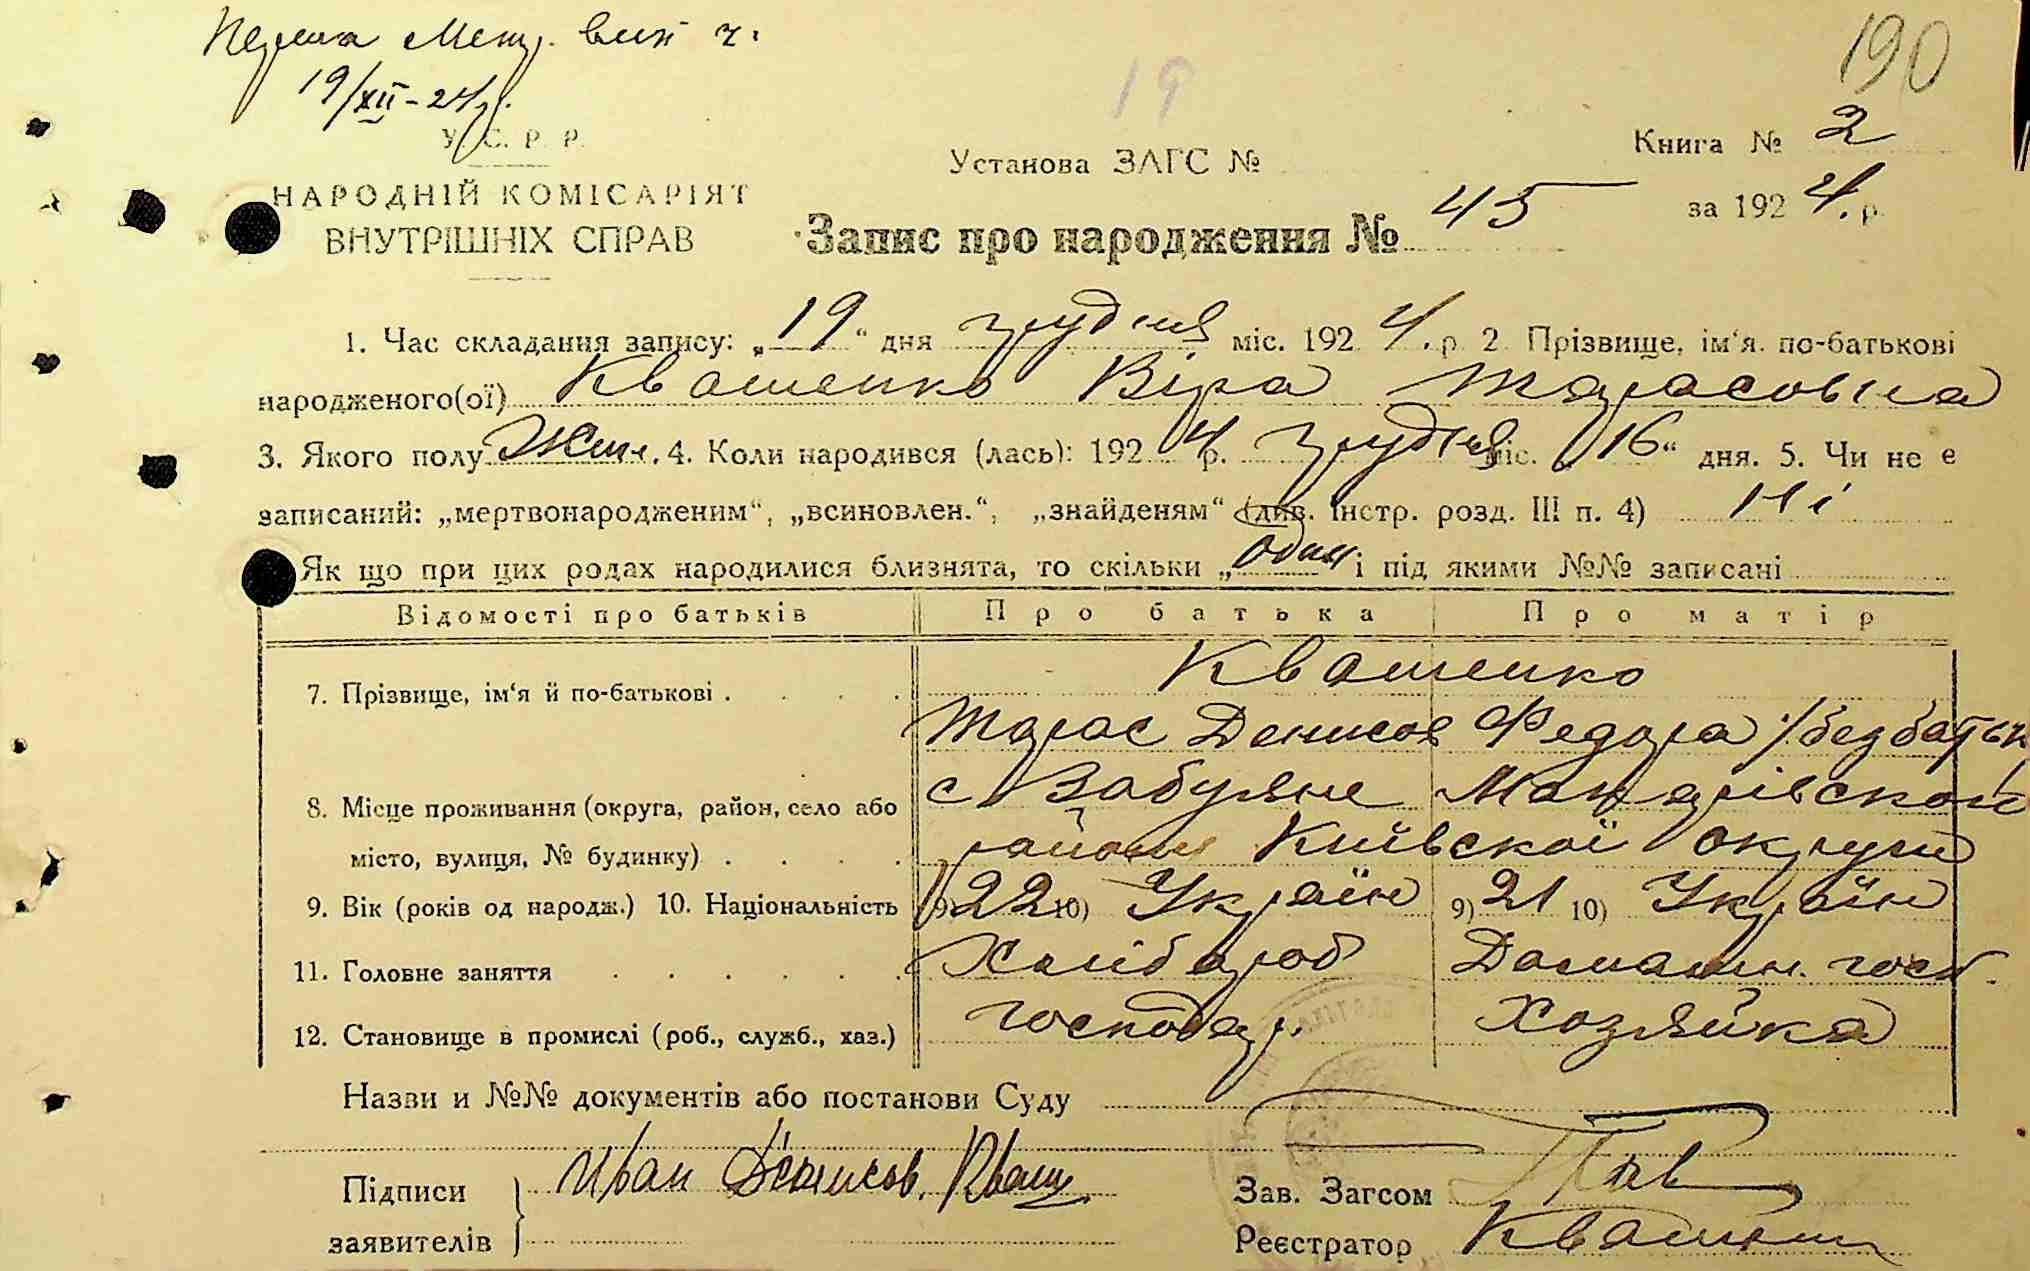 19/XII-24 р.
190
19
У. С. Р. Р.
НАРОДНІЙ КОМІСАРІЯТ
ВНУТРІШНІХ СПРАВ
Установа ЗАГС №
Книга № 2
за 1924. р.
Запис про народження № 45
1. Час складання запису: „19“ дня грудня міс. 1924. р. 2. Прізвище, ім‘я. по-батькові
народженого(ої) Квашенко Віра Тарасовна
3. Якого полу Жін. 4. Коли народився (лась): 1924 р. грудня міс. „16“ дня. 5. Чи не є
записаний: „мертвонародженим“, „всиновлен.“, „знайденям“ (див. інстр. розд. III п. 4) Ні
Як що при цих родах народилися близнята, то скільки „один і під якими №№ записані
Відомості про батьків Про батька Про матір
7. Прізвище, ім‘я й по-батькові . . . . Квашенко
Тарас Денисов Федора /безбатьк
8. Місце проживання (округа, район, село або с Забуяне Макарівского
місто, вулиця, № будинку) . . . . району Київскої округи
9. Вік (років од народж.) 10. Національність 9) 22 10) Україн 9) 21 10) Україн
11. Головне заняття . . . . . . Хлібороб Домашн. госп.
12. Становище в промислі (роб., служб., хаз.) господар. Хозяйка
Назви и №№ документів або постанови Суду
Підписи Иван Денисов. Кваш
заявителів
Зав. Загсом
Реєстратор Квашенко